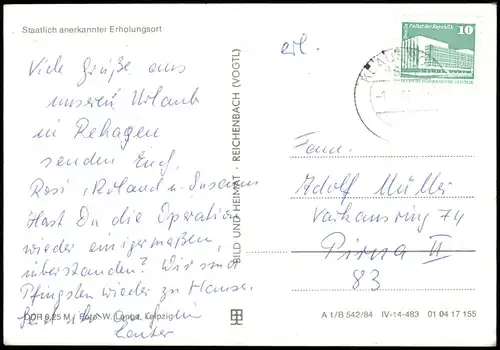 Staatlich anerkannter Erholungsort
erl.
Viele Grüße aus
unserem Urlaub
in Rehagen
senden Euch
Rosi, Roland u. Susanne
Hast Du die Operation
wieder einigermaßen
überstanden? Wir sind
Pfingsten wieder zu Hause.
DDR 0,25 M Foto: W. Lange, Leipzig
BILD UND HEIMAT · REICHENBACH (VOGTL)
Palast der Republik
10
Fam.
Adolf Müller
Varkausring 74
Pirna II
83
A 1/B 542/84 IV-14-483 01 04 17 155